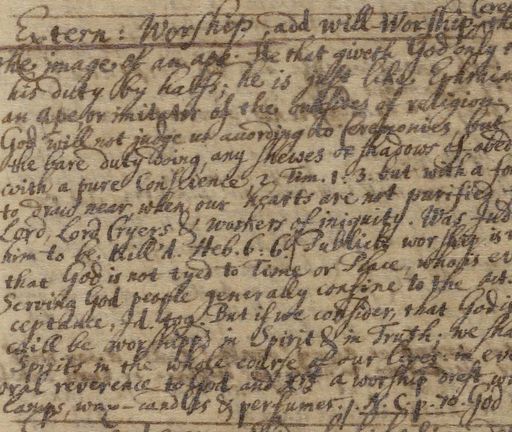 Extern: Worship, add will Worship
the image of an ape. He that giveth God only t
his duty by halfs; he is just like Ephraim
an ape or imitator of the outsides of religion
God will not judge us according to Ceremonies, but
the bare duty doing, any shewes or shadows of obed
with a pure Conscience, 2 Tim. 1. 3. but with a fo
to draw near when our hearts are not purified
Lord Lord Cryers & workers of iniquity. Was Jud
him to be kill'd. Heb. 6. 6. Publick worship is
that God is not tyed to Time or Place, who is ev
Serving God people generally confine to the
ceptance, Id. 409. But if we consider, that God is
will be worshipt in Spirit & in Truth; we sha
Spirits in the whole course of our lives in eve
oral reverence to God and a worship
lamps, wax-candles & perfumes. J. H. C. p. 70. God